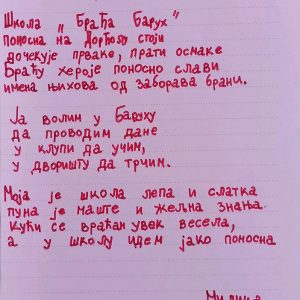 Школа „Браћа Барух"
поносна на Дорћолу стоји
дочекује прваке, прати осмаке
Браћу хероје поносно слави
имена њихова од заборава брани.
Ја волим у Баруху
да проводим дане
у клупи да учим,
у дворишту да трчим.
Моја је школа лепа и слатка
пуна је маште и жељна знања.
Кући се враћам увек весела,
а у школу идем јако поносна